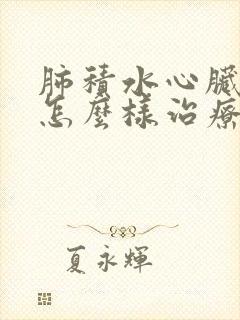 肺積水心臟
怎麼樣治療
夏永輝